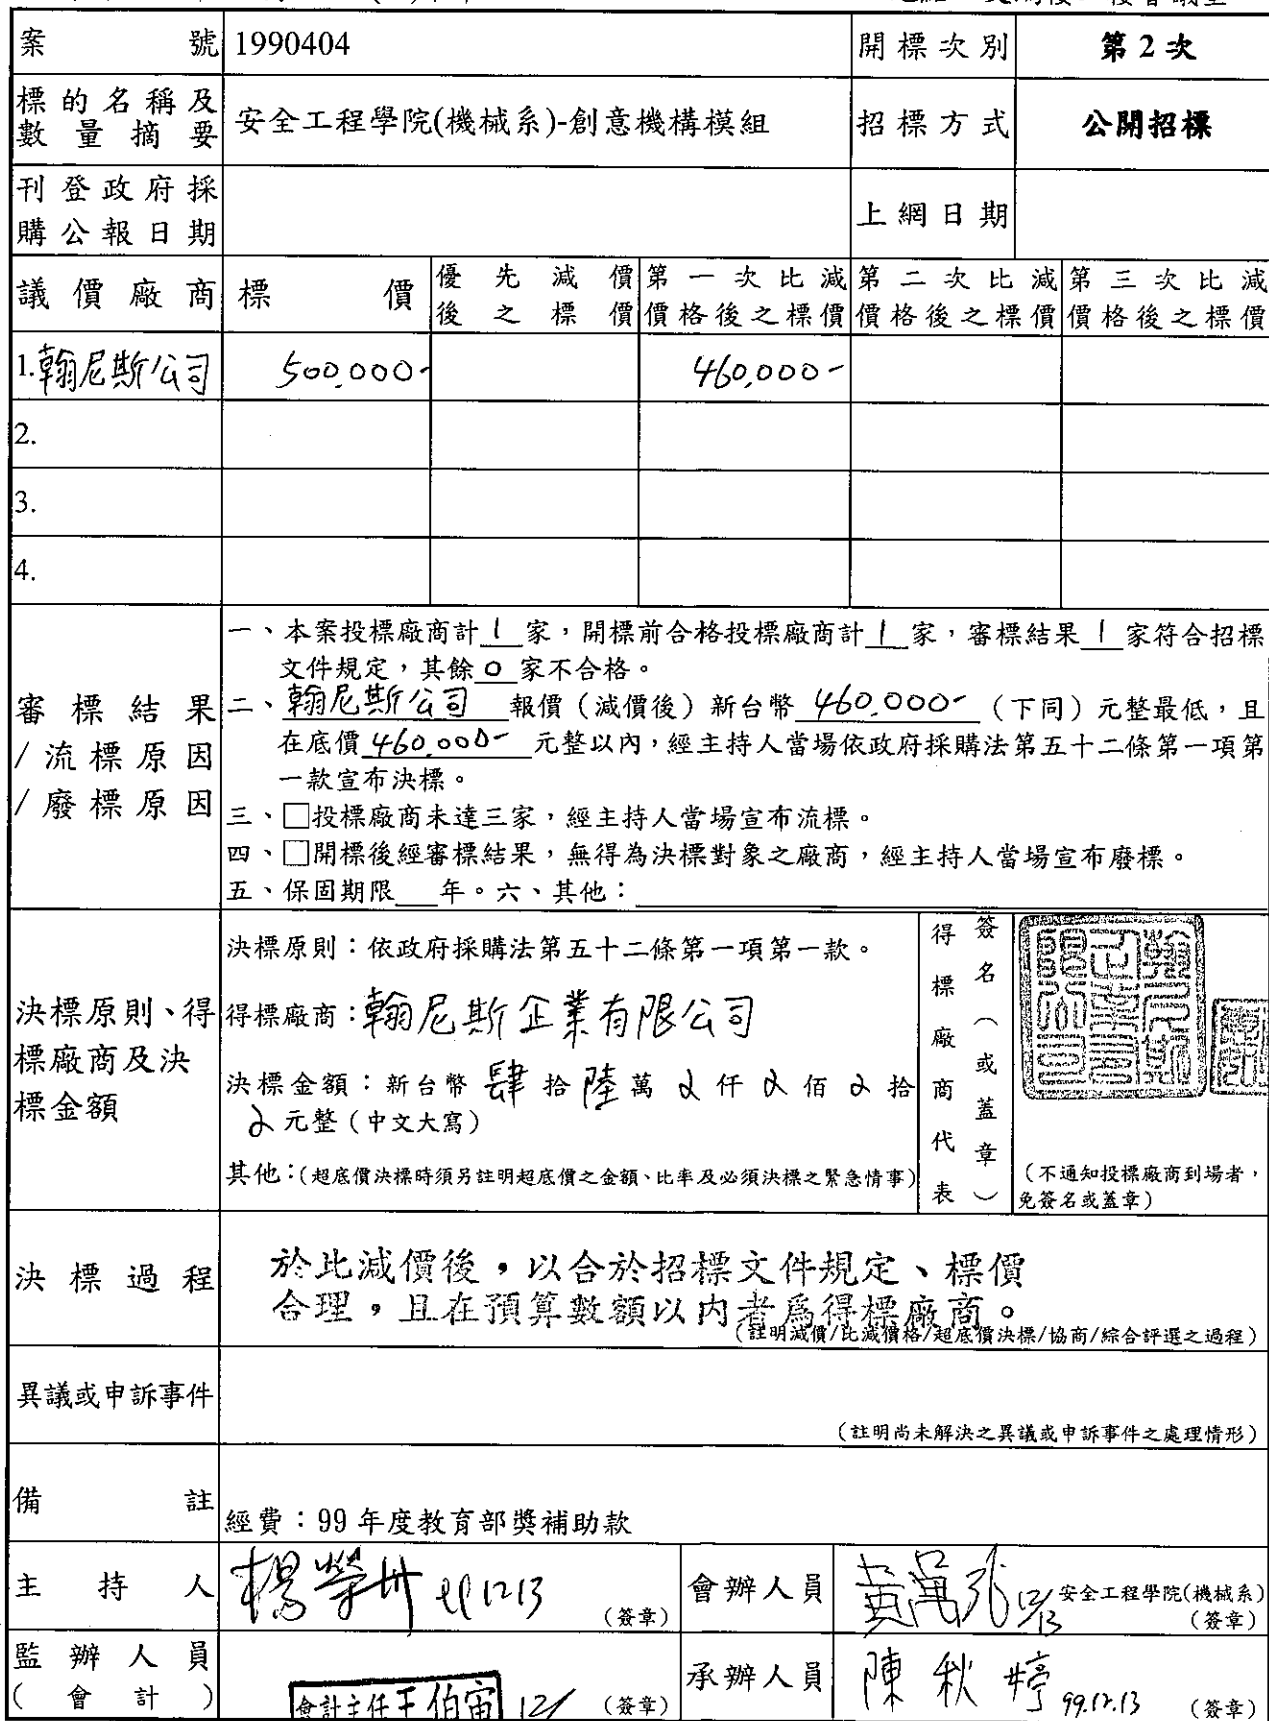 案號 1990404 開標次別 第2次
標的名稱及數量摘要 安全工程學院(機械系)-創意機構模組 招標方式 公開招標
刊登政府採購公報日期 上網日期
議價廠商 標價 優先減價後之標價 第一次比減價格後之標價 第二次比減價格後之標價 第三次比減價格後之標價
1.翰尼斯公司 500,000- 460,000-
2.
3.
4.
審標結果/流標原因/廢標原因
一、本案投標廠商計1家，開標前合格投標廠商計1家，審標結果1家符合招標
文件規定，其餘0家不合格。
二、翰尼斯公司 報價（減價後）新台幣 460,000- （下同）元整最低，且
在底價 460,000- 元整以內，經主持人當場依政府採購法第五十二條第一項第
一款宣布決標。
三、□投標廠商未達三家，經主持人當場宣布流標。
四、□開標後經審標結果，無得為決標對象之廠商，經主持人當場宣布廢標。
五、保固期限___年。六、其他：
決標原則、得標廠商及決標金額
決標原則：依政府採購法第五十二條第一項第一款。
得標廠商：翰尼斯企業有限公司
決標金額：新台幣 肆 拾 陸 萬 0 仟 0 佰 0 拾
0 元整（中文大寫）
其他：（超底價決標時須另註明超底價之金額、比率及必須決標之緊急情事）
得標廠商代表
簽名（或蓋章）
翰尼斯企業有限公司
（不通知投標廠商到場者，
免簽名或蓋章）
決標過程
於比減價後，以合於招標文件規定、標價
合理，且在預算數額以內者為得標廠商。
（註明減價/比減價格/超底價決標/協商/綜合評選之過程）
異議或申訴事件
（註明尚未解決之異議或申訴事件之處理情形）
備註 經費：99 年度教育部獎補助款
主持人 楊榮 1213 （簽章） 會辦人員 黃 安全工程學院(機械系)
（簽章）
監辦人員（會計） 會計主任王伯 12/ （簽章） 承辦人員 陳秋婷 99.12.13 （簽章）